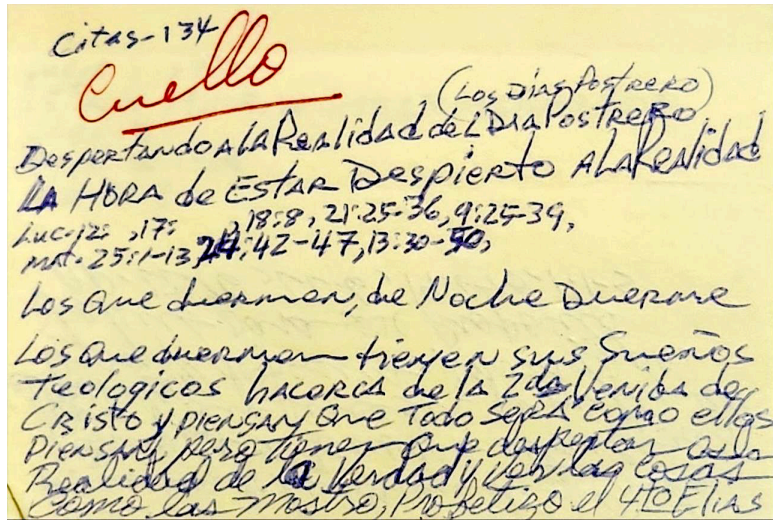 Citas-134
Cuello
(Los Dias Postrero)
Despertando A La Realidad del Dia Postrero
LA HORA de ESTAR Despierto A La Realidad
Luc-12: ,17: , 18:8, 21:25-36, 9:25-39,
Mat-25:1-13, 24:42-47, 13:30-50,
Los que duermen, de Noche Duerme
Los que duermen tienen sus Sueños
Teologicos hacerca de la 2da Venida de
Cristo y piensan que Todo Será como ellos
Piensan pero tienen que despertar a la
Realidad de la Verdad y ver las cosas
Como las Mostro, Profetizo el 4to Elias